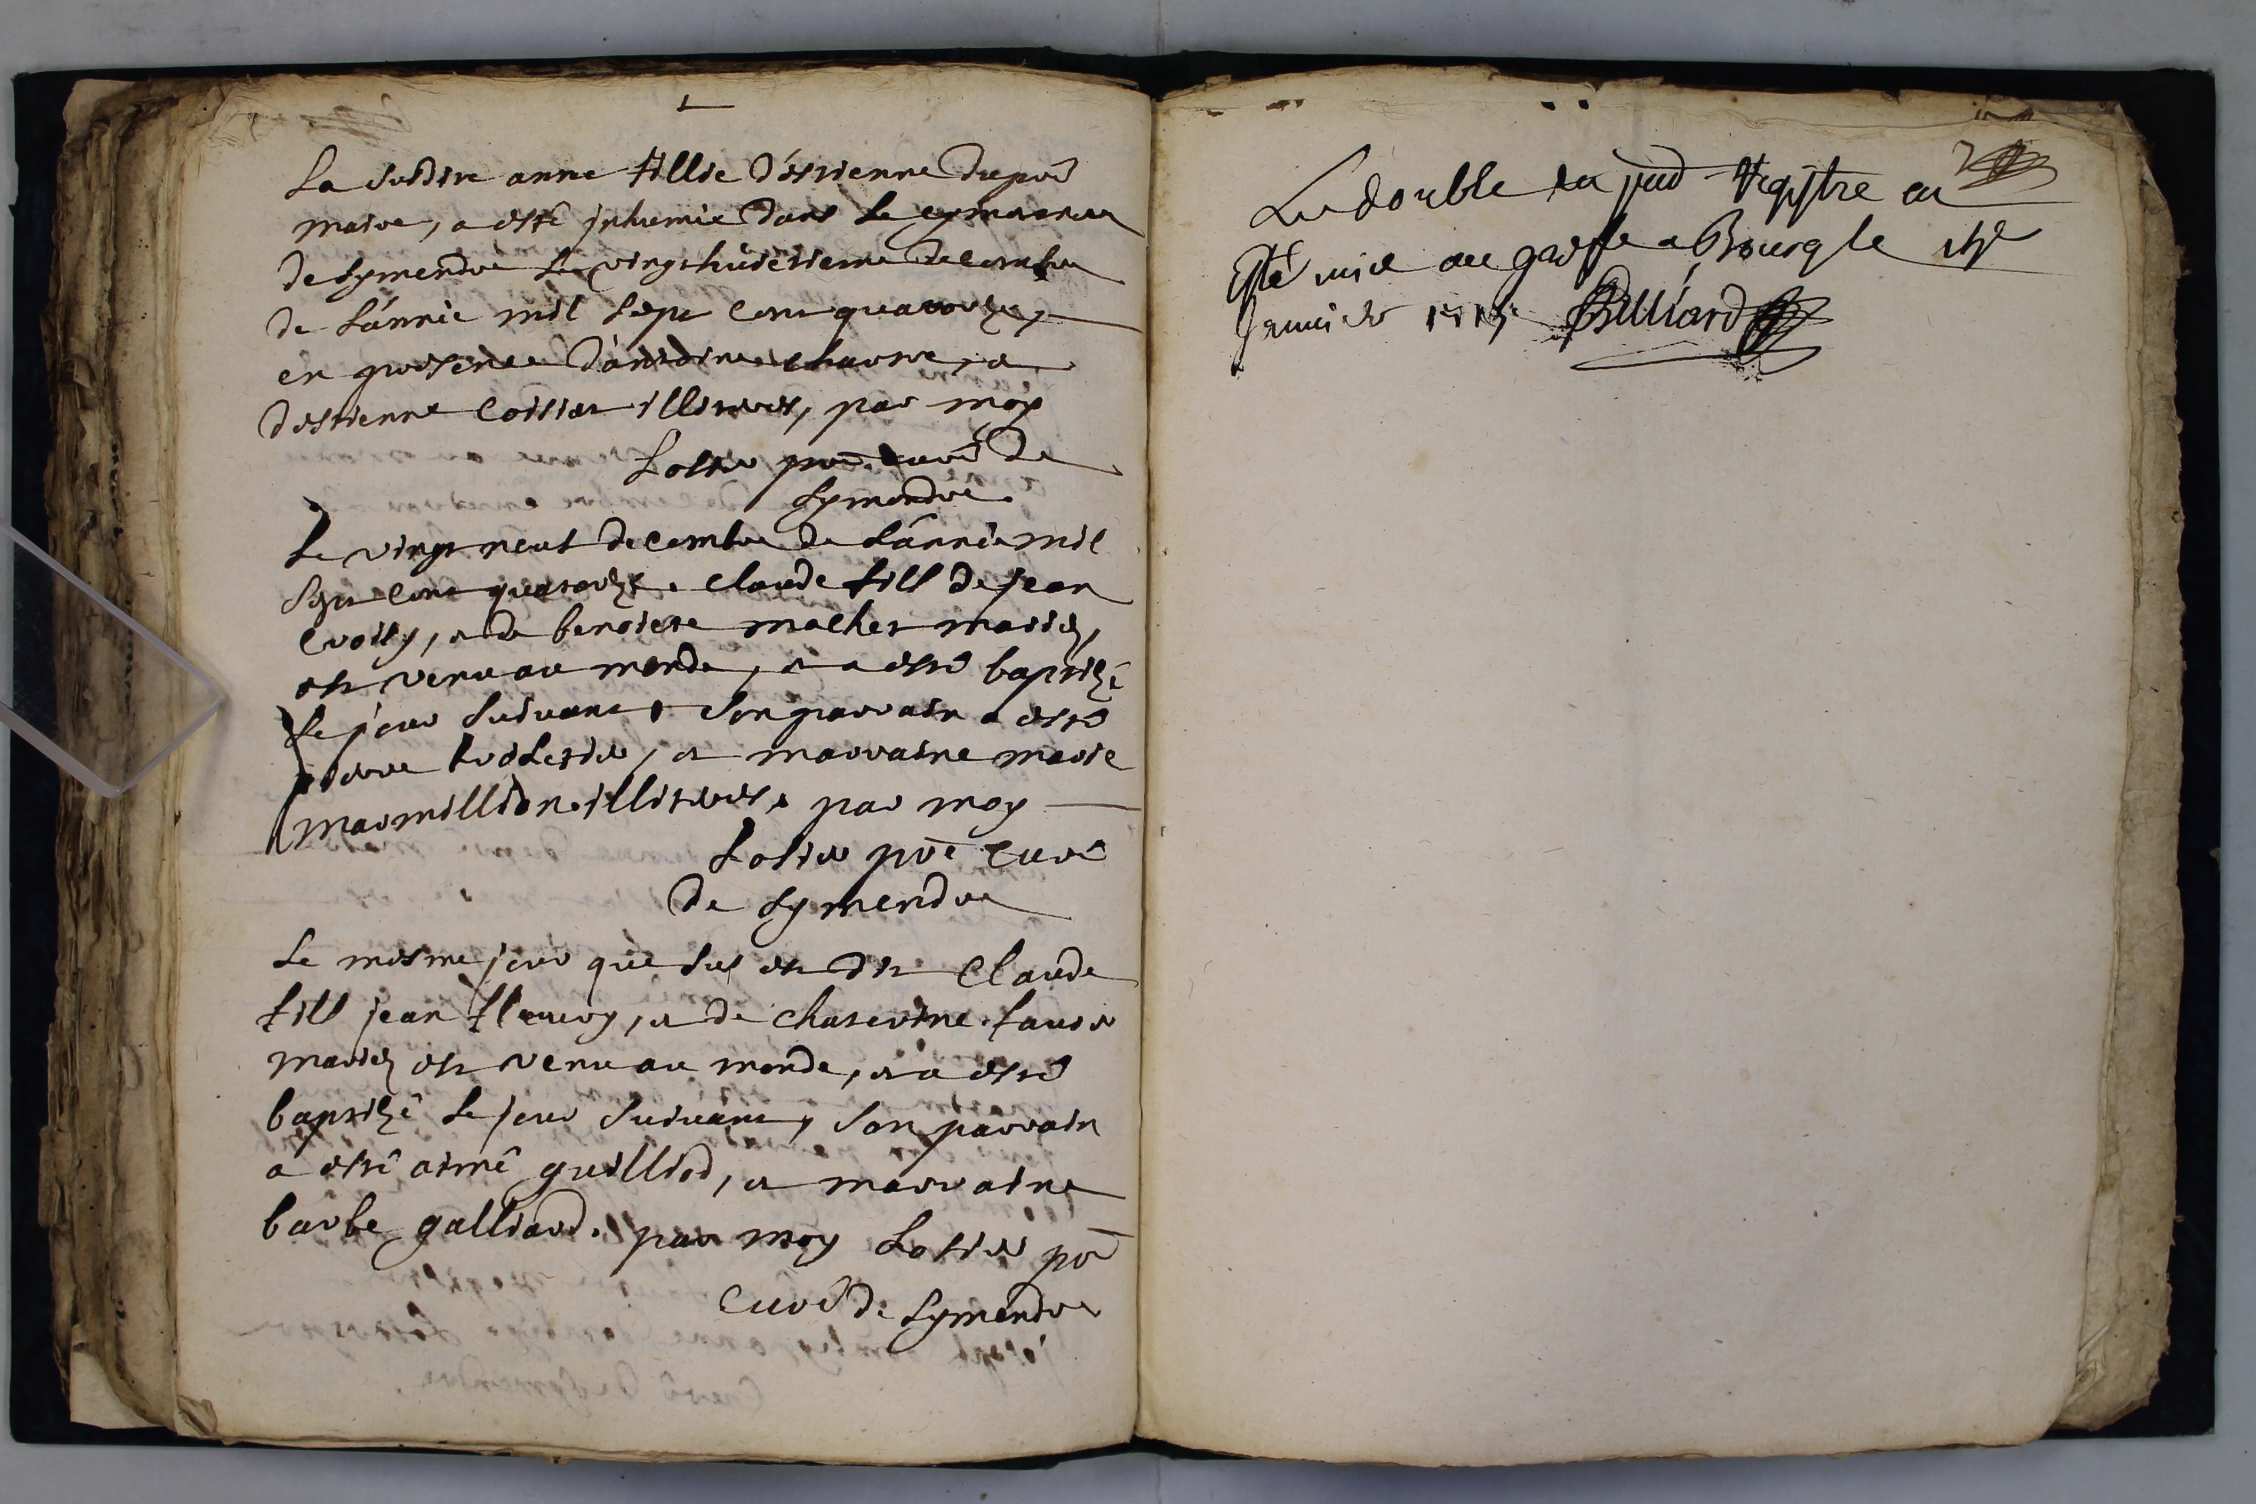 La susdite anne fillie d'estienne dupré
maire, a esté inhumée dans le cymetiere
de symendre le vingthuictieme decembre
de l'année mil sept cent quatorze,
en presence d'antoine chanre, et
d'estienne Coillat illiteres, par moy
Losier pre. curé de
symendre
Le vingt neuf decembre de l'année mil
sept cent quatorze. Claude fill de jean
Evolly, et de benoiste malher mariez,
est venu au monde, et a esté baptizé
le jour suivant. son parrain a esté
pierre , et marraine marie
marmillion. illiteres. par moy
Losier pre curé
de symendre
Le mesme jour que sus est dit Claude
fill jean fleury, et de chaterine favre
mariez est venu au monde, et a esté
baptizé le jour suivant, son parrain
a esté aimé guilliod, et marraine
barbe galliard. par moy Losier pre
Curé de symendre
2
Le double du pnt Registre a
Esté mis au greffe a Bourg le
Janvier 1715 Billiard